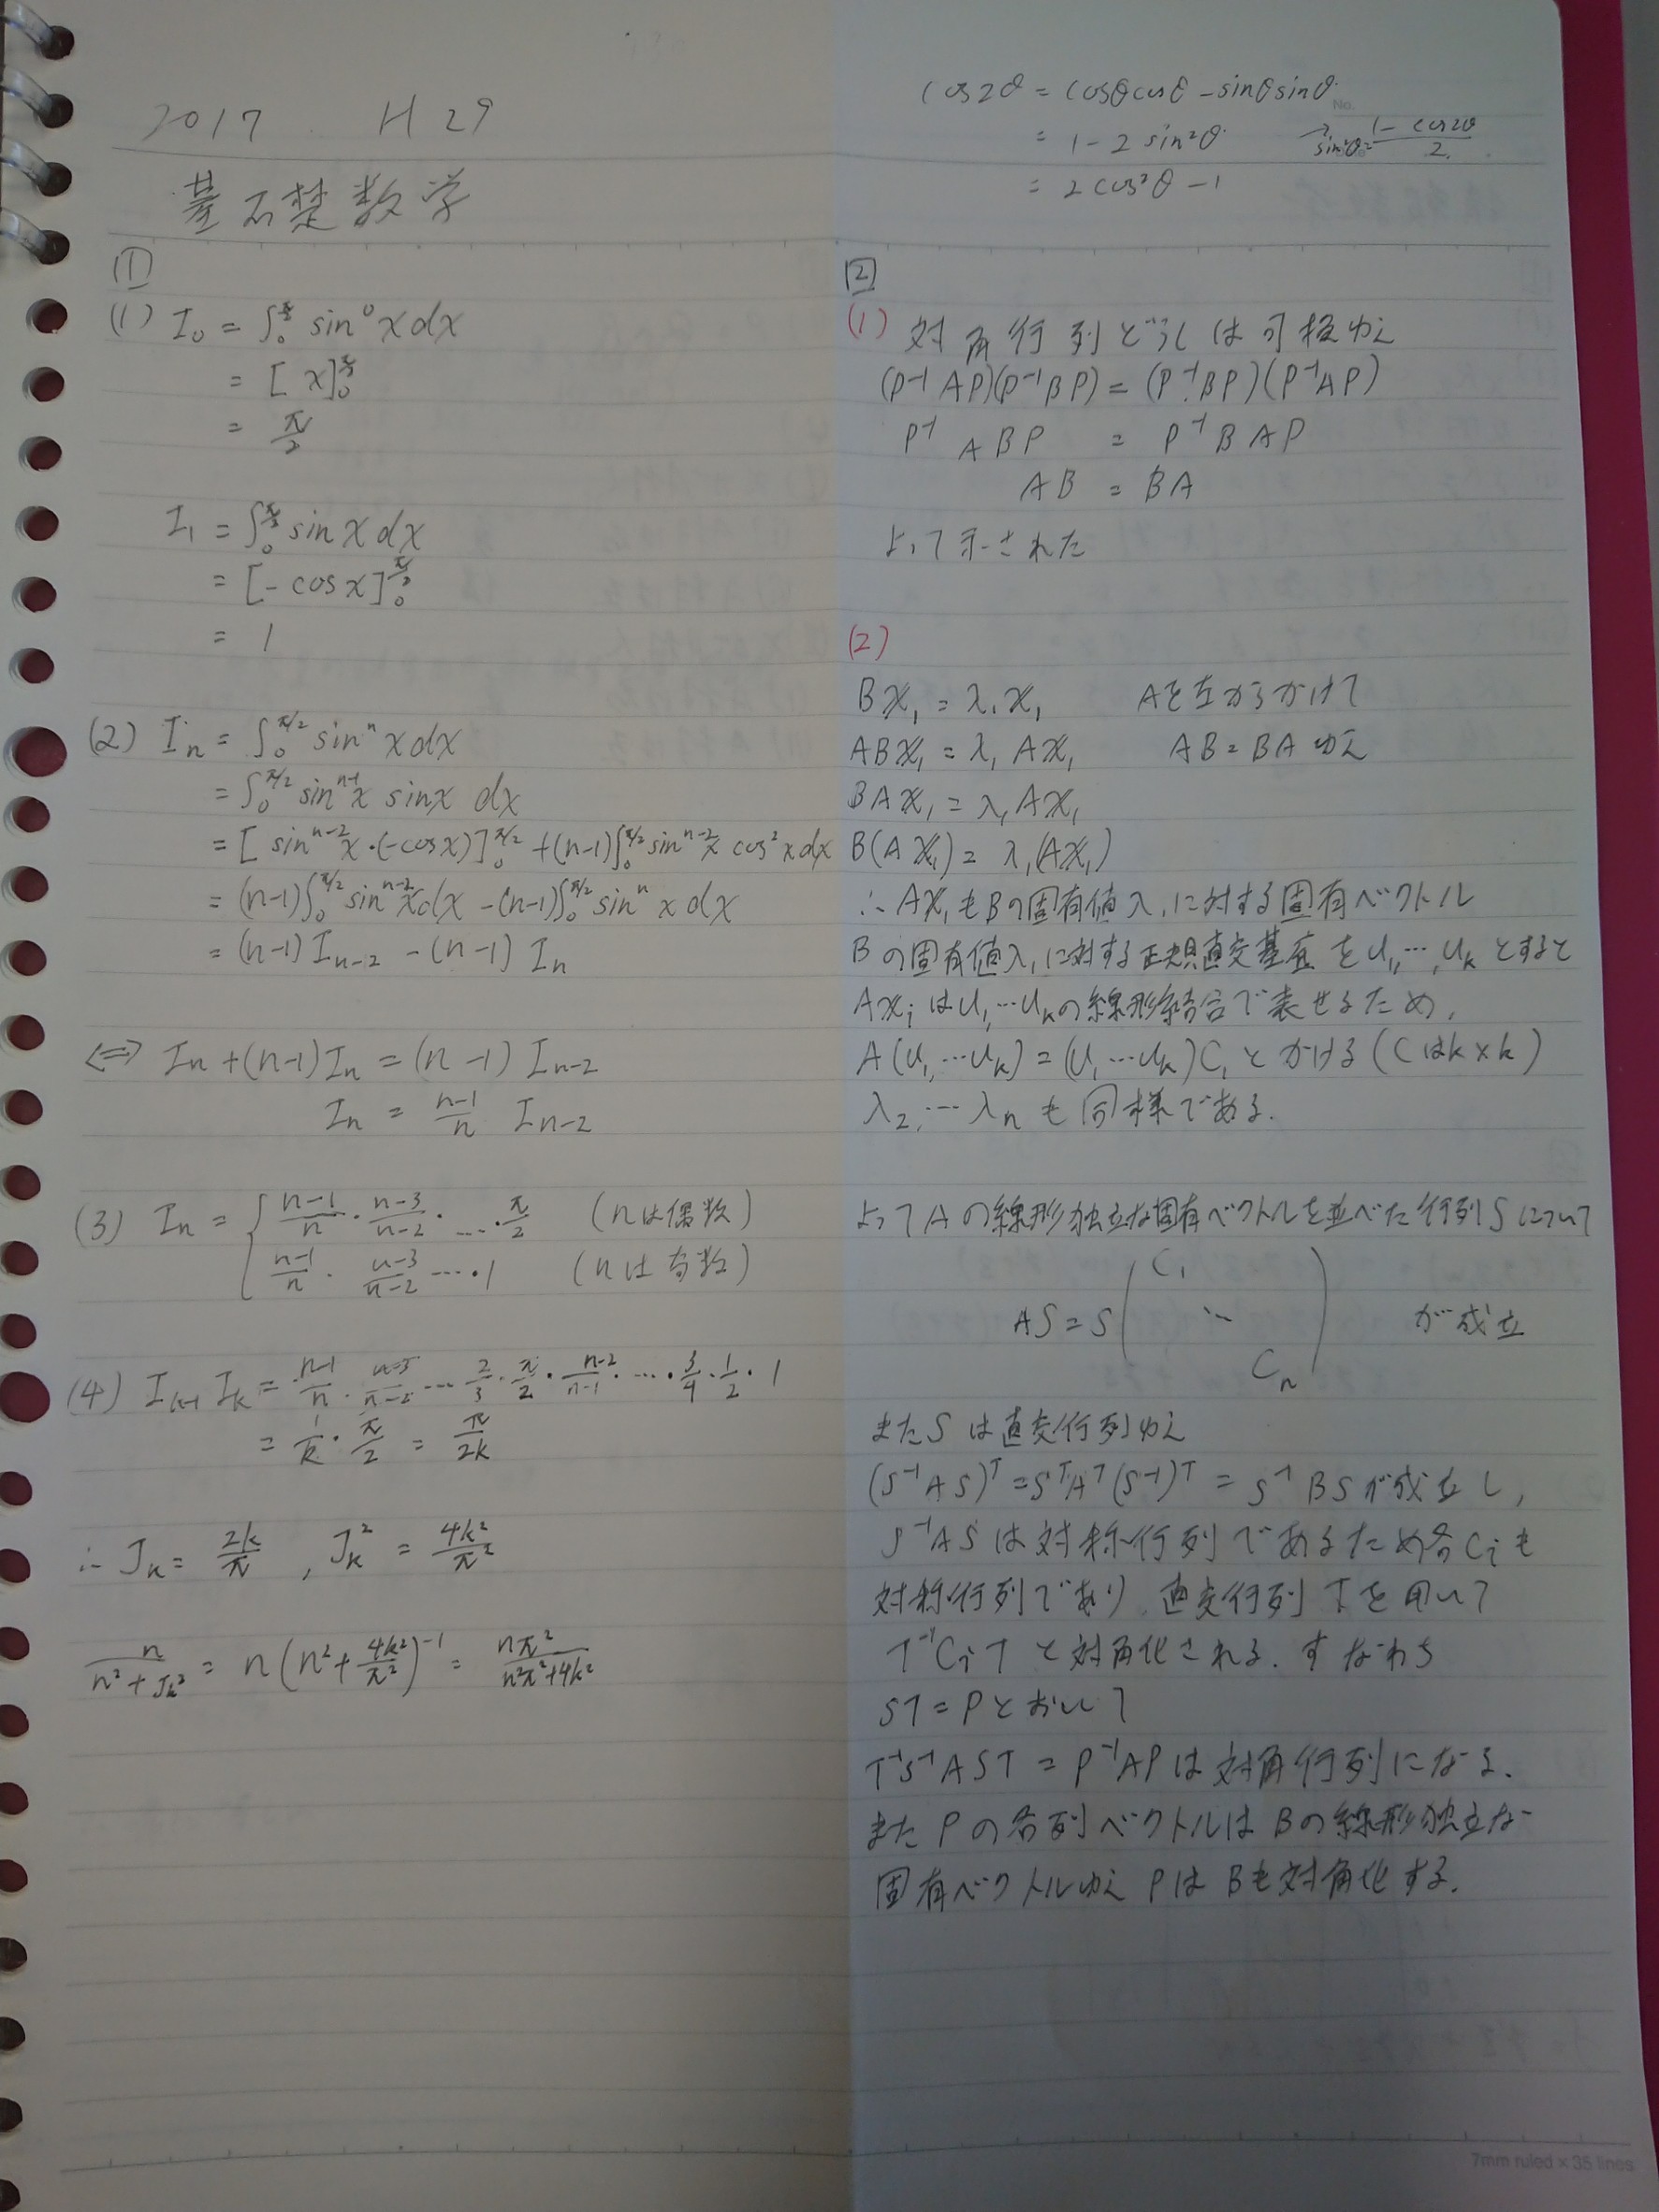 2017 H29
基礎数学
1
(1) I₀ = ∫₀^{π/2} sin⁰x dx
= [x]₀^{π/2}
= π/2
I₁ = ∫₀^{π/2} sin x dx
= [-cos x]₀^{π/2}
= 1
(2) Iₙ = ∫₀^{π/2} sinⁿ x dx
= ∫₀^{π/2} sinⁿ⁻¹x sin x dx
= [sinⁿ⁻²x・(-cos x)]₀^{π/2} + (n-1)∫₀^{π/2} sinⁿ⁻²x cos²x dx
= (n-1)∫₀^{π/2} sinⁿ⁻²x dx - (n-1)∫₀^{π/2} sinⁿ x dx
= (n-1) Iₙ₋₂ - (n-1) Iₙ
⇔ Iₙ + (n-1)Iₙ = (n-1) Iₙ₋₂
Iₙ = (n-1)/n Iₙ₋₂
(3) Iₙ = { (n-1)/n・(n-3)/(n-2)・…・π/2 (nは偶数)
(n-1)/n・(n-3)/(n-2)…・1 (nは奇数)
(4) Iₖ₋₁ Iₖ = (n-1)/n・ … 2/3・π/2・(n-2)/(n-1)・…・3/4・1/2・1
= 1/k・π/2 = π/2k
∴ Jₖ = 2k/π , Jₖ² = 4k²/π²
n/(n²+Jₖ²) = n(n²+4k²/π²)⁻¹ = nπ²/(n²π²+4k²)
cos2θ = cosθcosθ - sinθsinθ
= 1-2sin²θ → sin²θ = (1-cos2θ)/2
= 2cos²θ-1
2
(1) 対角行列どうしは可換ゆえ
(P⁻¹AP)(P⁻¹BP) = (P⁻¹BP)(P⁻¹AP)
P⁻¹ABP = P⁻¹BAP
AB = BA
よって示された
(2)
Bx₁ = λ₁x₁ Aを左からかけて
ABx₁ = λ₁Ax₁ AB=BAゆえ
BAx₁ = λ₁Ax₁
B(Ax₁) = λ₁(Ax₁)
∴ Ax₁もBの固有値λ₁に対する固有ベクトル
Bの固有値λ₁に対する正規直交基底をu₁,…,uₖとすると
Axᵢはu₁…uₖの線形結合で表せるため,
A(u₁,…uₖ) = (u₁…uₖ)C₁とかける(Cはk×k)
λ₂,…λₙも同様である.
よってAの線形独立な固有ベクトルを並べた行列Sについて
AS = S(C₁ ⋱ Cₙ) が成立
またSは直交行列ゆえ
(S⁻¹AS)ᵀ = SᵀAᵀ(S⁻¹)ᵀ = S⁻¹BSが成立し,
S⁻¹ASは対称行列であるため各Cᵢも
対称行列であり,直交行列Tを用いて
T⁻¹CᵢTと対角化される.すなわち
ST=Pとおいて
T⁻¹S⁻¹AST = P⁻¹APは対角行列になる.
またPの各列ベクトルはBの線形独立な
固有ベクトルゆえPはBも対角化する.
7mm ruled × 35 lines